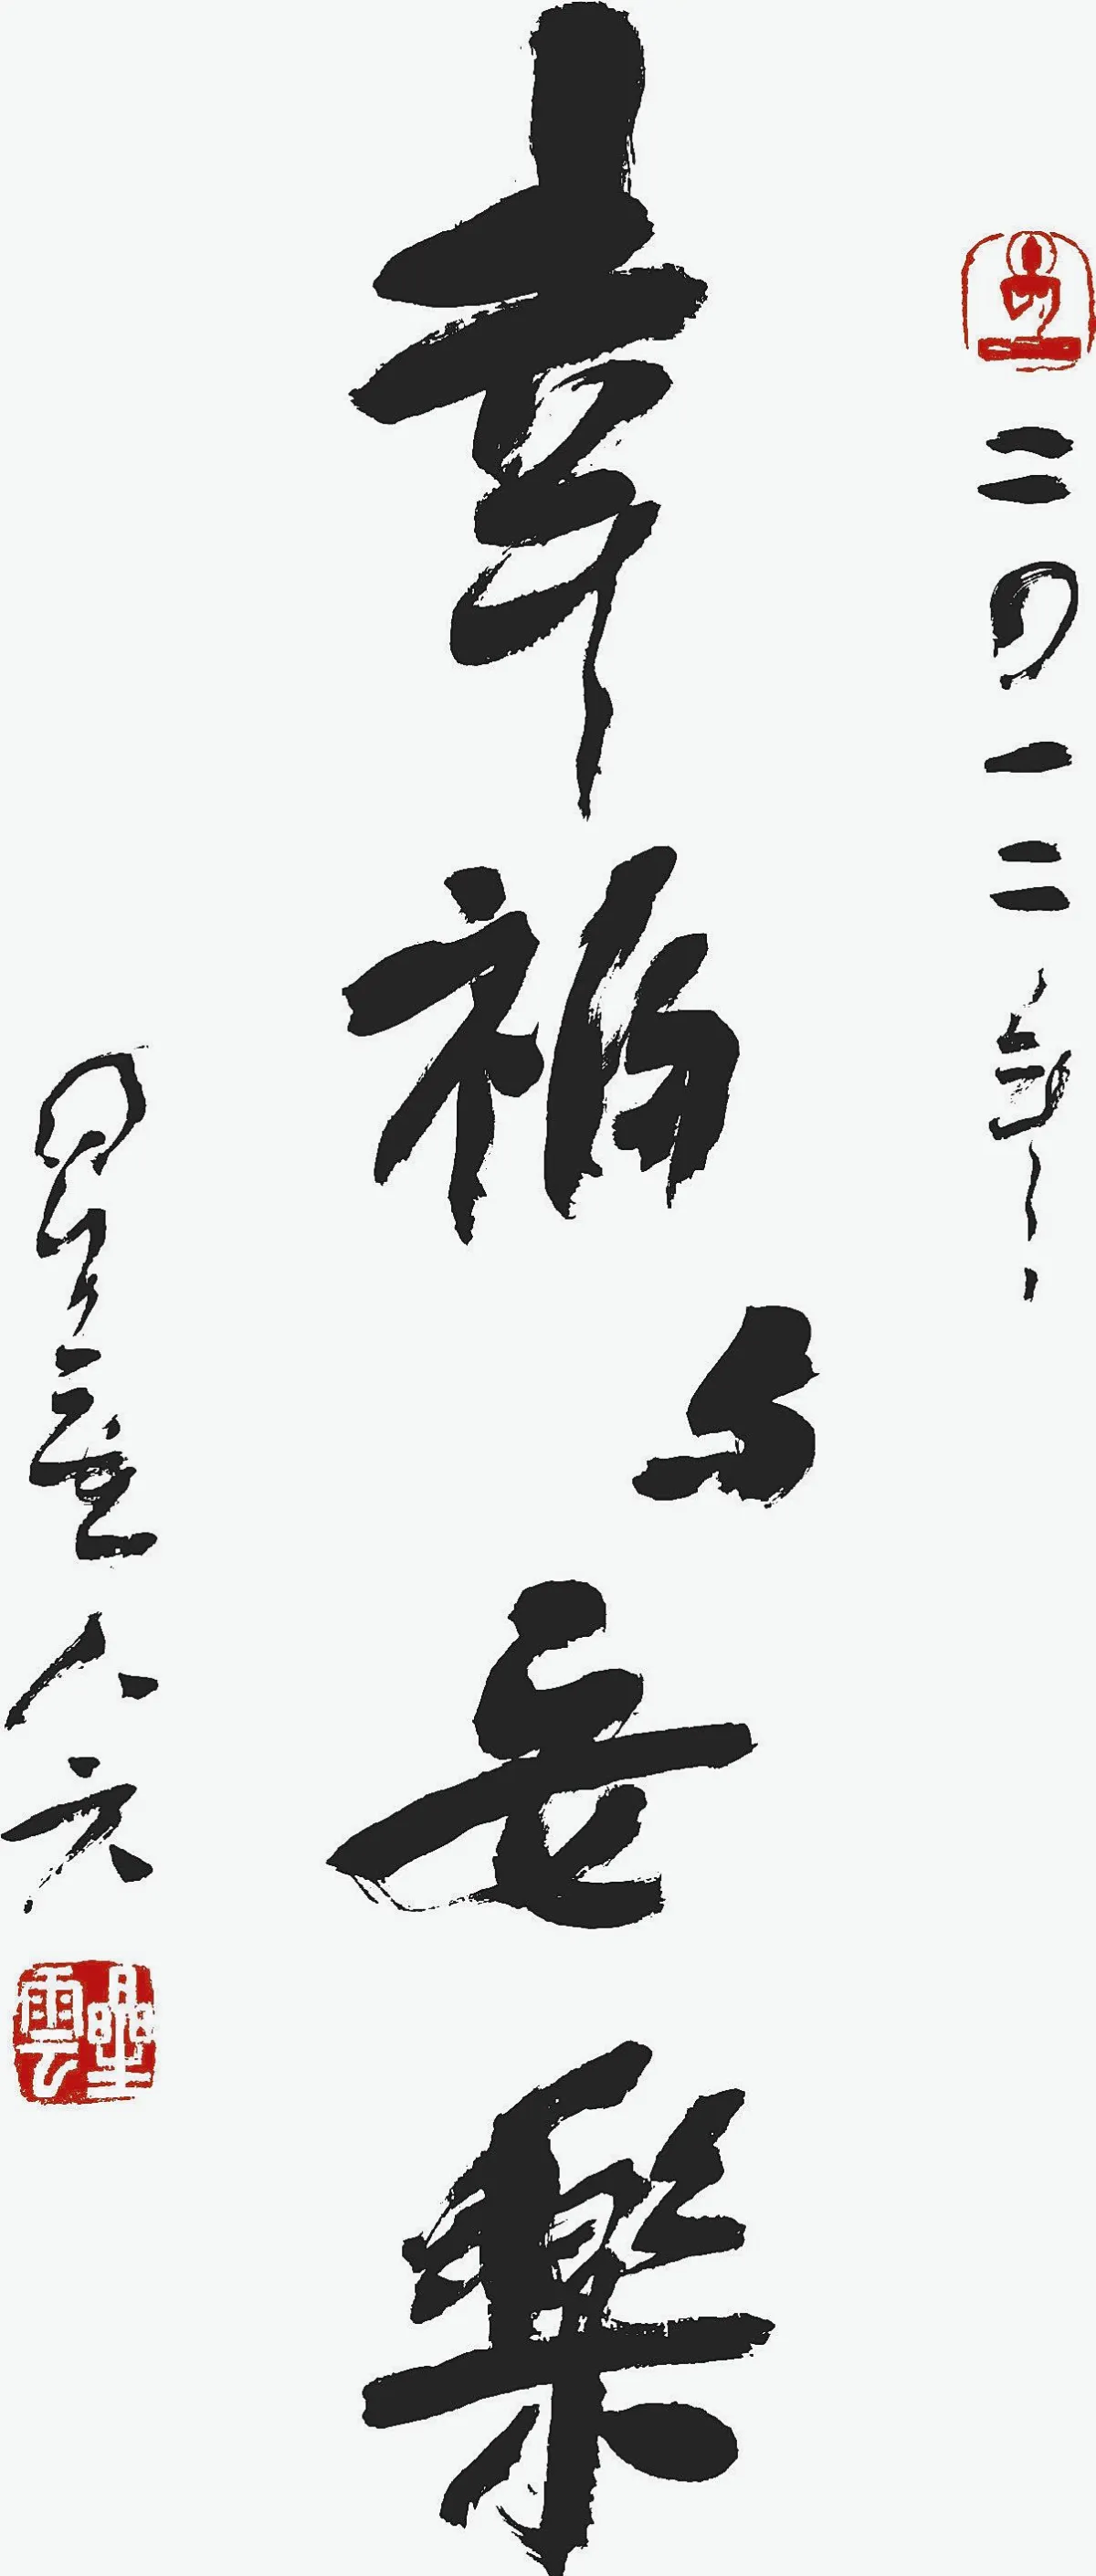 二〇一二年
幸福与安樂
星雲八六
星雲